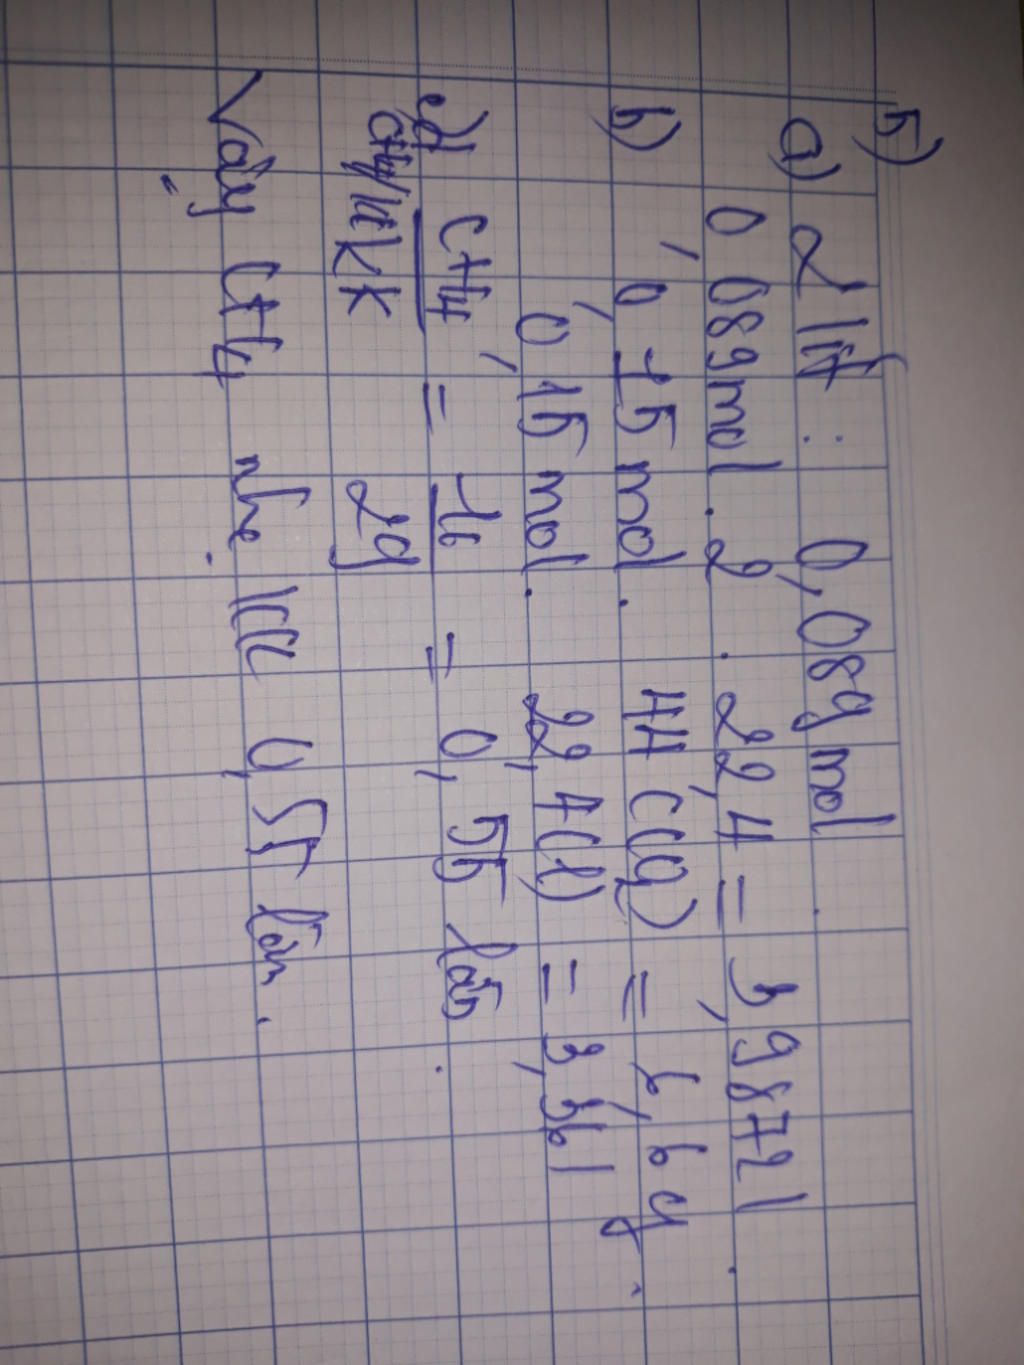 5)
a) 2 lít : 0,089 mol.
0,089 mol . 2 . 22,4 = 3,9872 l.
b) 0,15 mol . 44 (g) = 6,6 g.
0,15 mol . 22,4 (l) = 3,36 l
c) d CH4/kk CH4 / KK = 16 / 29 = 0,55 lần.
Vậy CH4 nhẹ KK 0,55 lần.